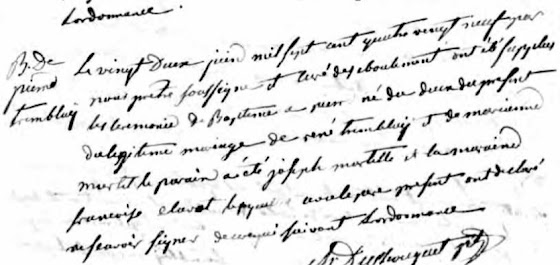 Lordonnance.
B. de pierre tremblay
Le vingt Deux juin mil sept cent quatre vingt neuf par
nous pretre soussigné et curé des eboulement ont été supplées
les ceremonie de Baptême a pierre né du deux du present
du legitime mariage de rené tremblay et de marienne
martel le parain a été joseph martelle et la maraine
françoise le pere present ont declaré
ne scavoir signer de ce requi suivant Lordonnance
ptr